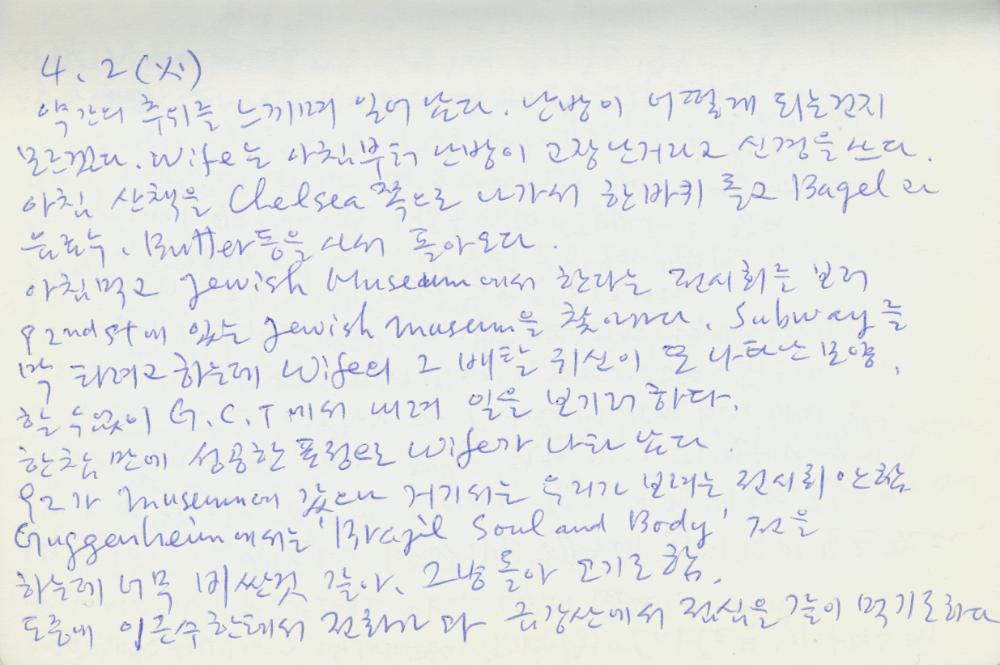 4. 2 (火)
약간의 추위를 느끼며 일어 났다. 난방이 어떻게 되는건지
모르겠다. Wife는 아침부터 난방이 고장난거라고 신경을 쓰다.
아침 산책을 Chelsea 쪽으로 나가서 한바퀴 돌고 Bagel과
음료수, Butter등을 사서 돌아오다.
아침먹고 Jewish Museum에서 한다는 전시회를 보러
92nd St에 있는 Jewish museum을 찾아가다. Subway를
막 타려고 하는데 Wife의 그 배탈 귀신이 또 나타난 모양,
할 수 없이 G.C.T에서 내려 일을 보기러 하다.
한참 만에 성공한 표정으로 Wife가 나타 났다.
92가 museum에 갔으나 거기서는 우리가 보려는 전시회 안함
Guggenheim에서는 'Brazil Soul and Body' 전을
하는데 너무 비싼것 같아, 그냥 돌아 오기로 함.
도중에 이은수한테서 전화가 와 금강산에서 점심을 같이 먹기로하다